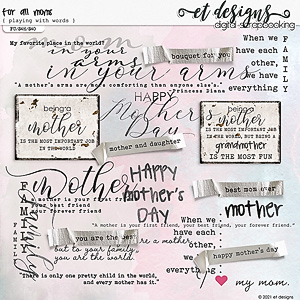 for all moms
{ playing with words }
PU/S4H/S4O
et designs
digital scrapbooking
My favorite place in the world?
mom
in your
arms
in your arms
bouquet for you
"A mother's arms are more comforting than anyone else's."
~Princess Diana
When we
have each
other,
we have
everything
FAMILY
being a
mother
IS THE MOST IMPORTANT JOB
IN THE WORLD
HAPPY
Mother's
Day
being a
mother
IS THE MOST IMPORTANT JOB
IS THE MOST IMPORTANT JOB
grandmother
IS THE MOST FUN
mother and daughter
mother
HAPPY
mother's
DAY
best mom ever
mother
FAMILY
FAMILY
family
A mother is your first friend,
your best friend,
your forever friend
When we
have
each other,
we have
everything
A mother is your first friend, your best friend, your forever friend
you are the best
mother
but to your family
you are the world.
happy mother's day
"There is only one pretty child in the world,
and every mother has it."
my mom.
© 2021 et designs